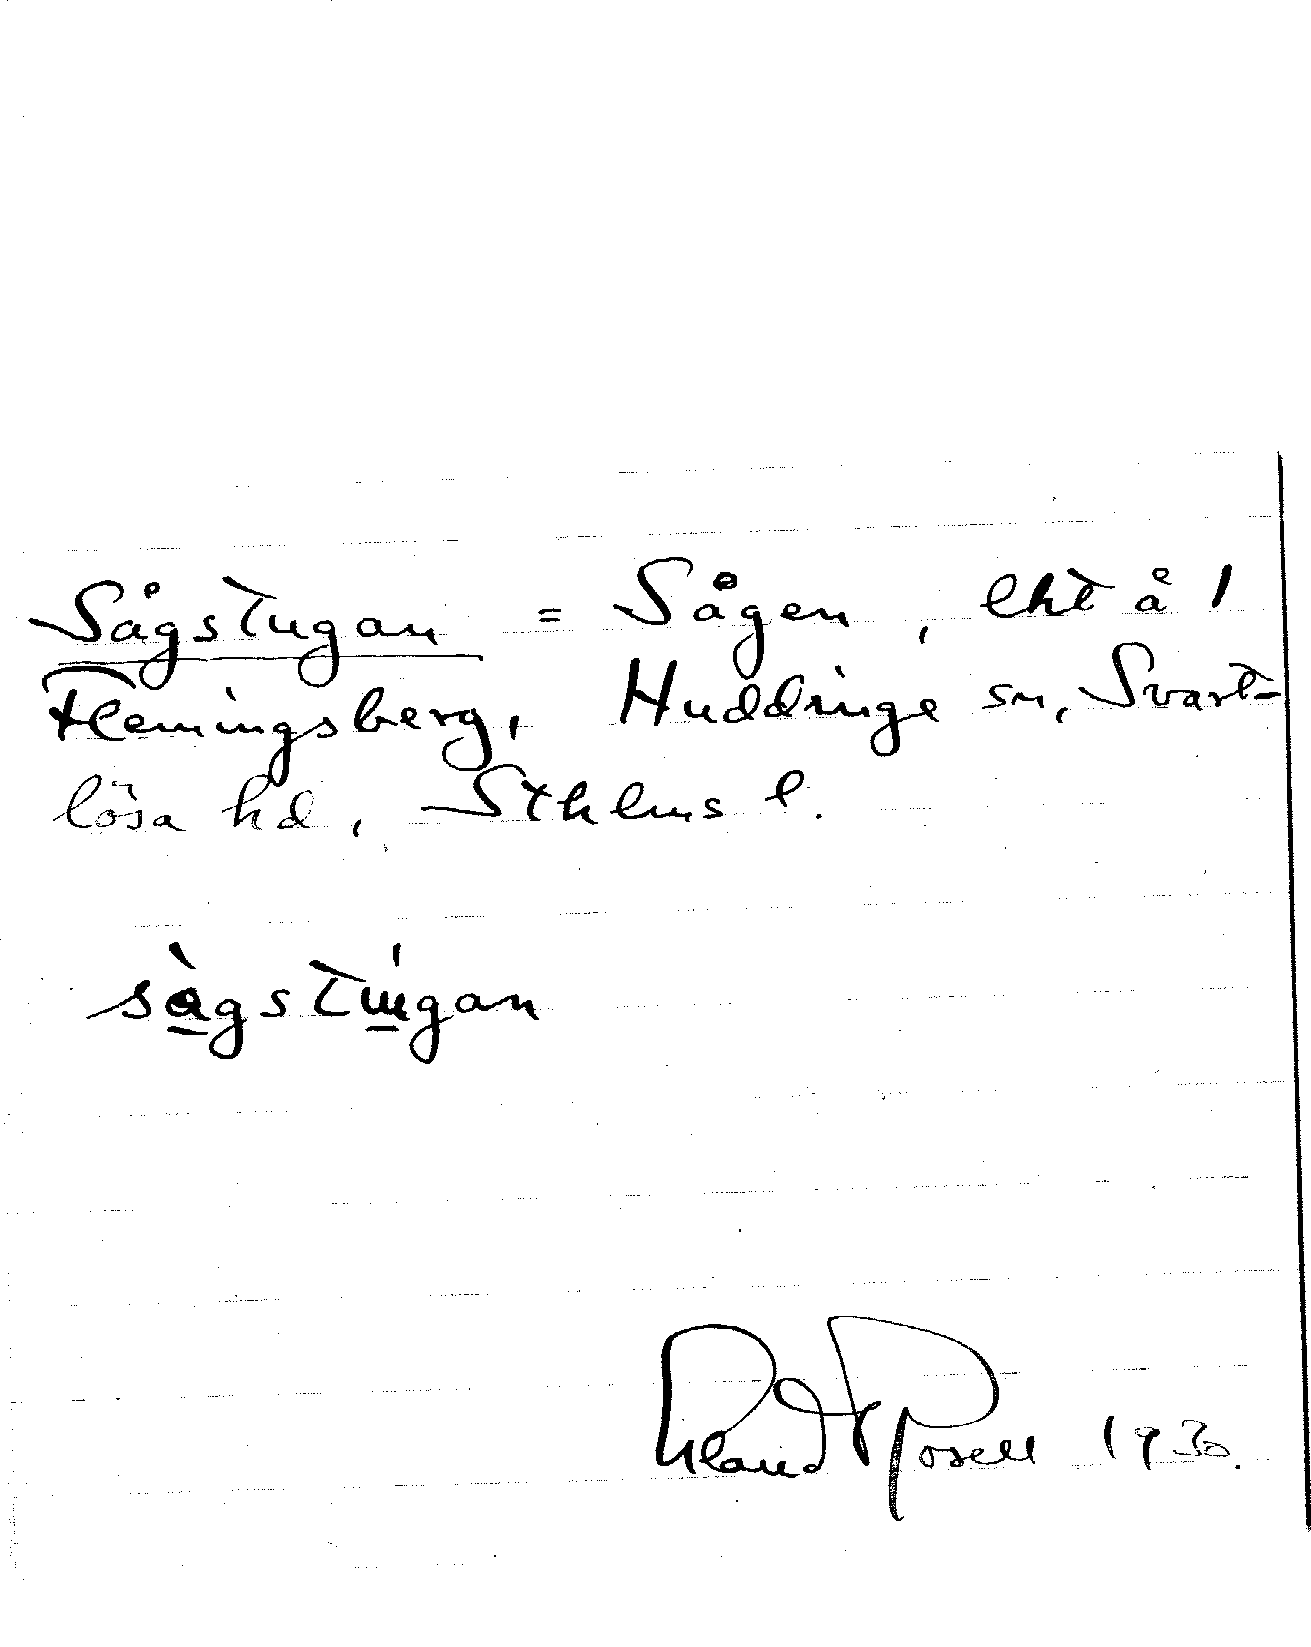 Sågstugan = Sågen, lht å 1
Flemingsberg, Huddinge sn, Svart-
lösa hd, Sthlms l.
sàgstúgan
Erland Rosell 1930.